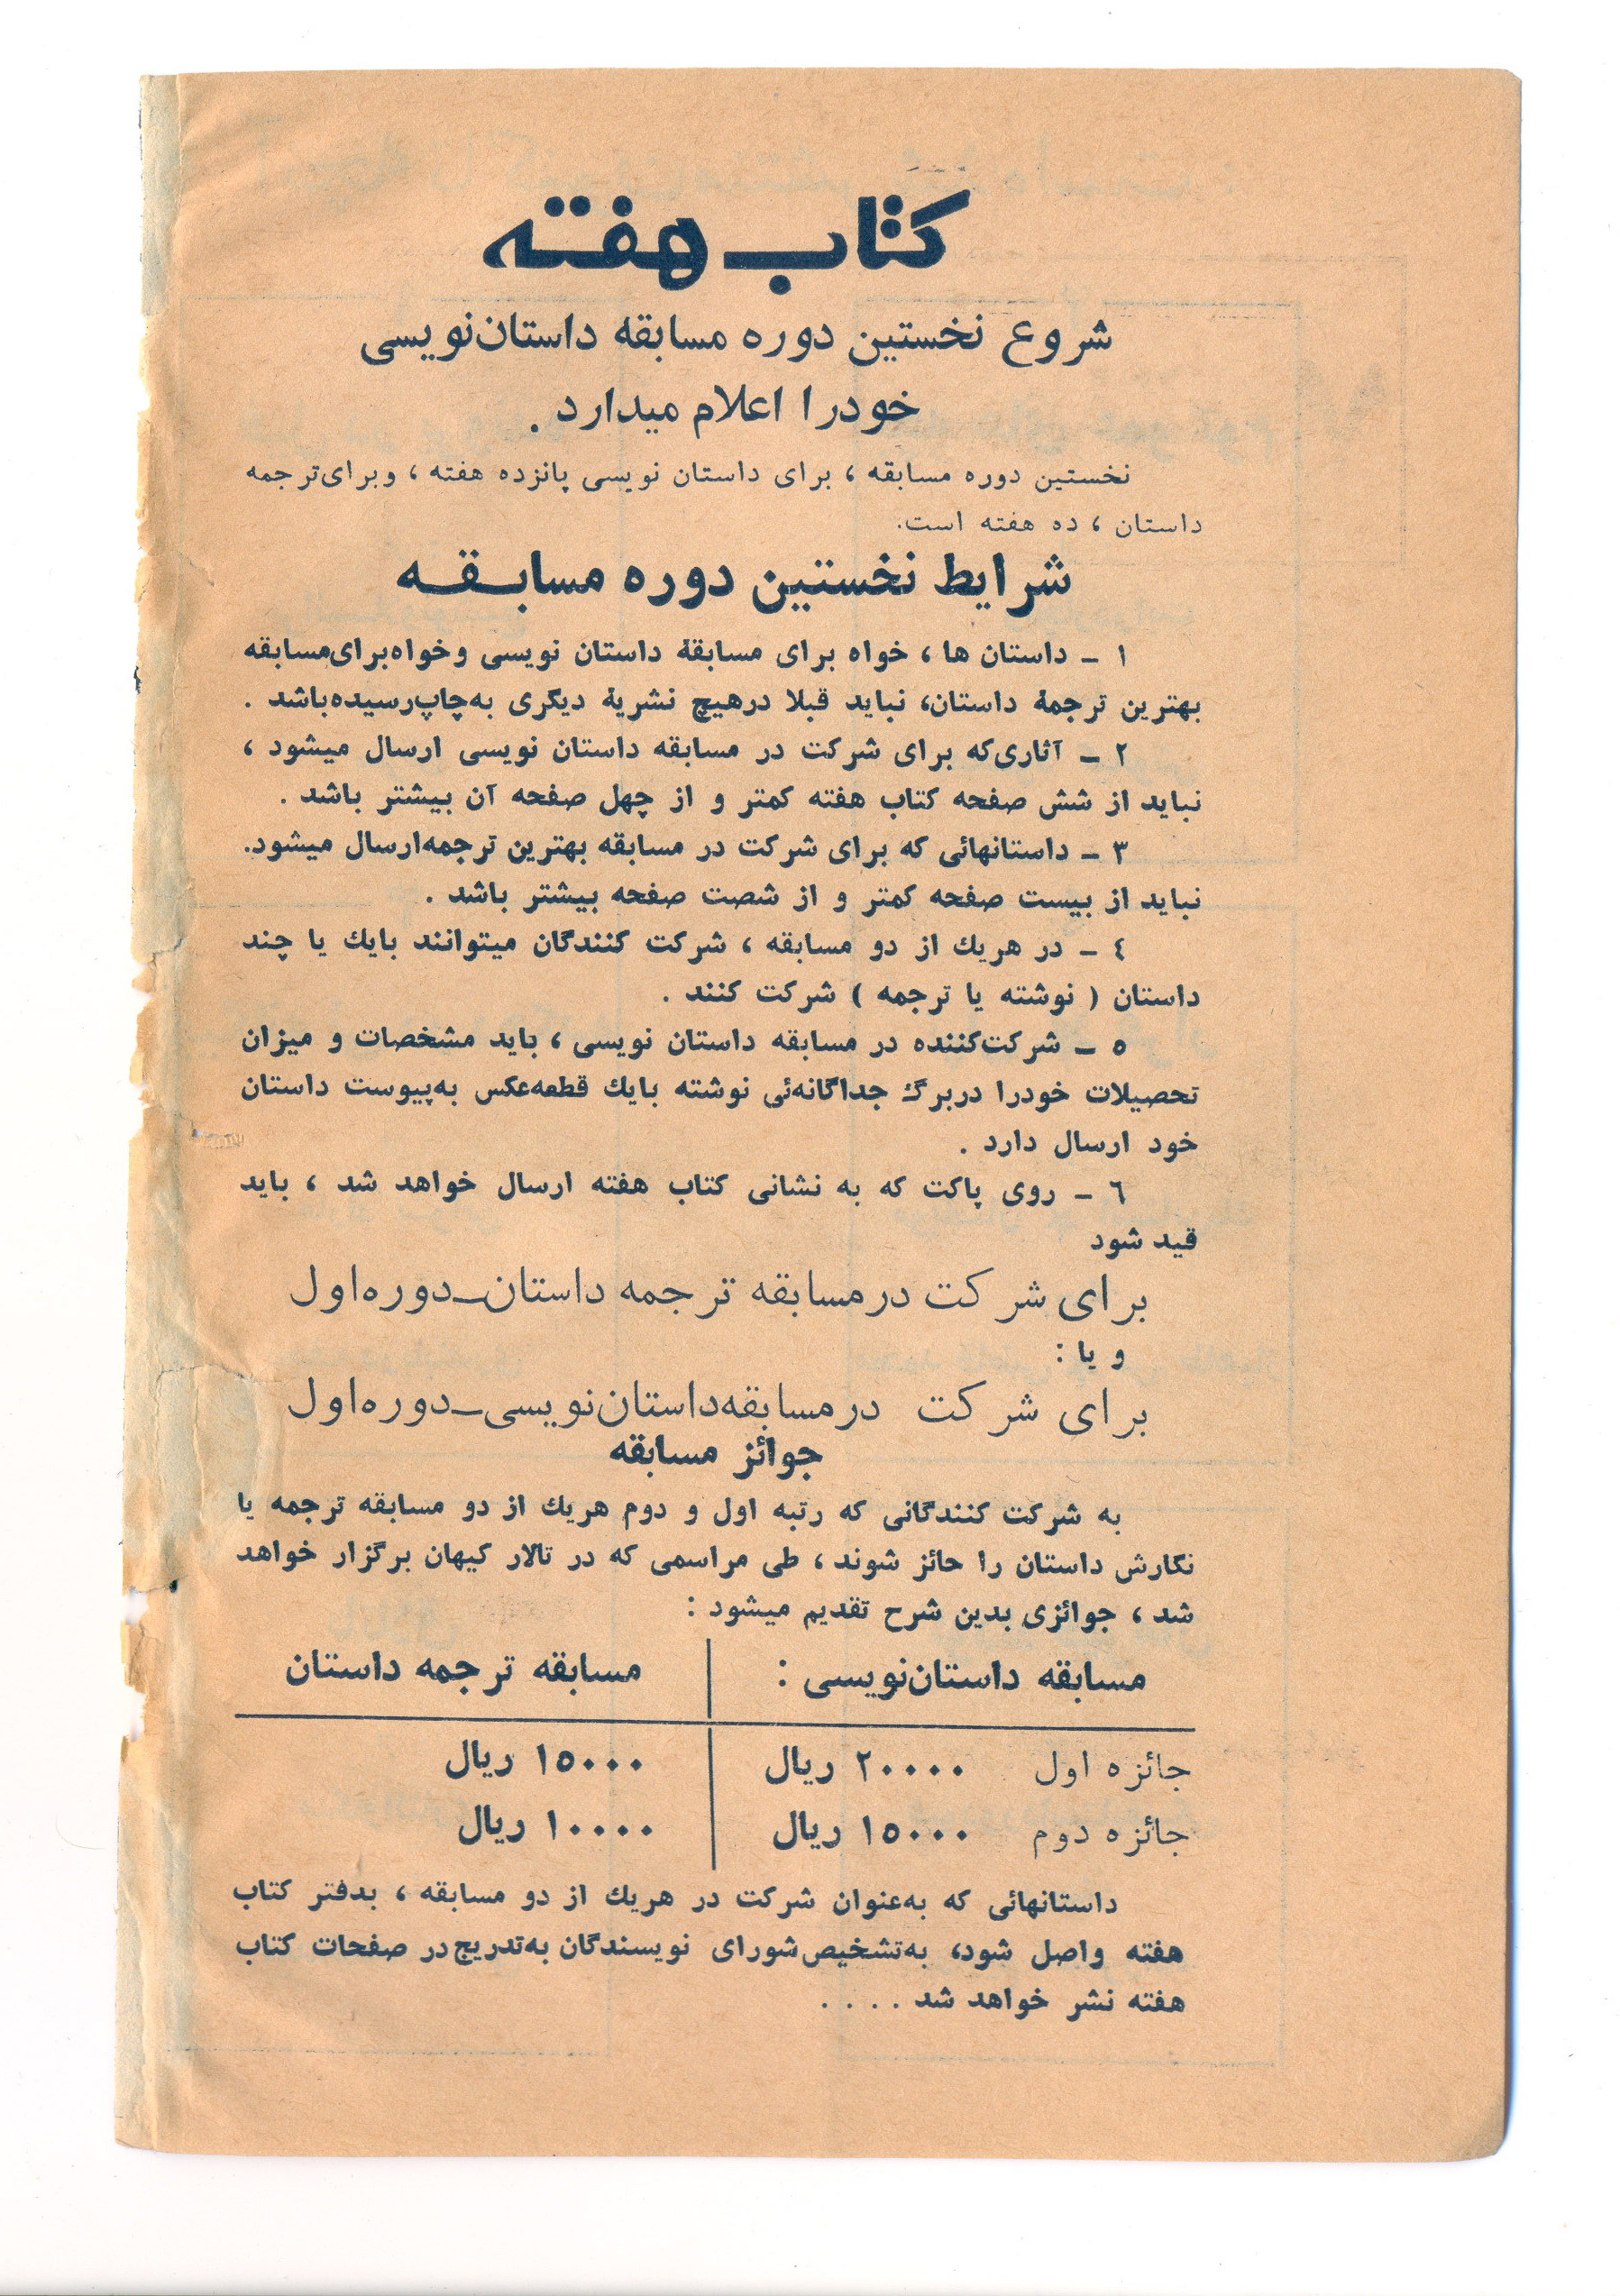 کتاب هفته
شروع نخستین دوره مسابقه داستان‌نویسی
خودرا اعلام میدارد .
نخستین دوره مسابقه ، برای داستان نویسی پانزده هفته ، وبرای‌ترجمه
داستان ، ده هفته است.
شرایط نخستین دوره مسابقه
۱ ـ داستان ها ، خواه برای مسابقهٔ داستان نویسی وخواه‌برای‌مسابقه
بهترین ترجمهٔ داستان، نباید قبلا درهیچ نشریهٔ دیگری به‌چاپ‌رسیده‌باشد .
۲ ـ آثاری‌که برای شرکت در مسابقه داستان نویسی ارسال میشود ،
نباید از شش صفحه کتاب هفته کمتر و از چهل صفحه آن بیشتر باشد .
۳ ـ داستانهائی که برای شرکت در مسابقه بهترین ترجمه‌ارسال میشود.
نباید از بیست صفحه کمتر و از شصت صفحه بیشتر باشد .
٤ ـ در هریك از دو مسابقه ، شرکت کنندگان میتوانند بایك یا چند
داستان ( نوشته یا ترجمه ) شرکت کنند .
٥ ـ شرکت‌کننده در مسابقه داستان نویسی ، باید مشخصات و میزان
تحصیلات خودرا دربرگ جداگانه‌ئی نوشته بایك قطعه‌عکس به‌پیوست داستان
خود ارسال دارد .
٦ ـ روی پاکت که به نشانی کتاب هفته ارسال خواهد شد ، باید
قید شود
برای شرکت درمسابقه ترجمه داستان‌ـ‌دوره‌اول
و یا :
برای شرکت درمسابقه‌داستان‌نویسی‌ـ‌دوره‌اول
جوائز مسابقه
به شرکت کنندگانی که رتبه اول و دوم هریك از دو مسابقه ترجمه یا
نگارش داستان را حائز شوند ، طی مراسمی که در تالار کیهان برگزار خواهد
شد ، جوائزی بدین شرح تقدیم میشود :
مسابقه داستان‌نویسی : مسابقه ترجمه داستان
جائزه اول ۲۰۰۰۰ ریال ۱٥۰۰۰ ریال
جائزه دوم ۱٥۰۰۰ ریال ۱۰۰۰۰ ریال
داستانهائی که به‌عنوان شرکت در هریك از دو مسابقه ، بدفتر کتاب
هفته واصل شود، به‌تشخیص‌شورای نویسندگان به‌تدریج‌در صفحات کتاب
هفته نشر خواهد شد . . . .